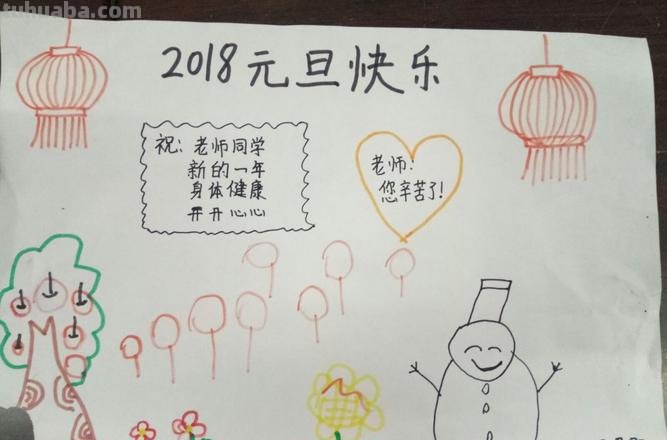 tuhuaba.com
2018元旦快乐
祝：老师同学
新的一年
身体健康
开开心心
老师：
您辛苦了！